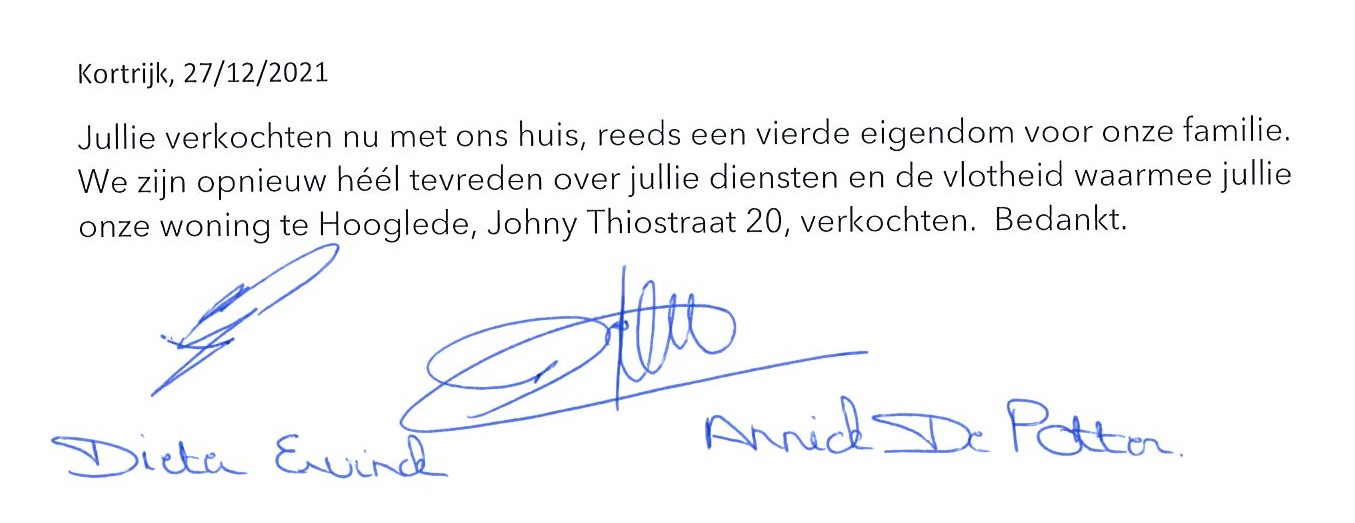 Kortrijk, 27/12/2021
Jullie verkochten nu met ons huis, reeds een vierde eigendom voor onze familie.
We zijn opnieuw héél tevreden over jullie diensten en de vlotheid waarmee jullie
onze woning te Hooglede, Johny Thiostraat 20, verkochten. Bedankt.
Annick De Potter.